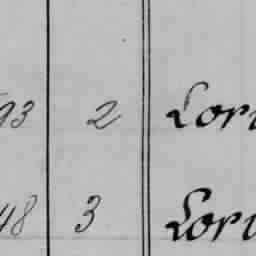 93 2 Lor
48 3 Lor